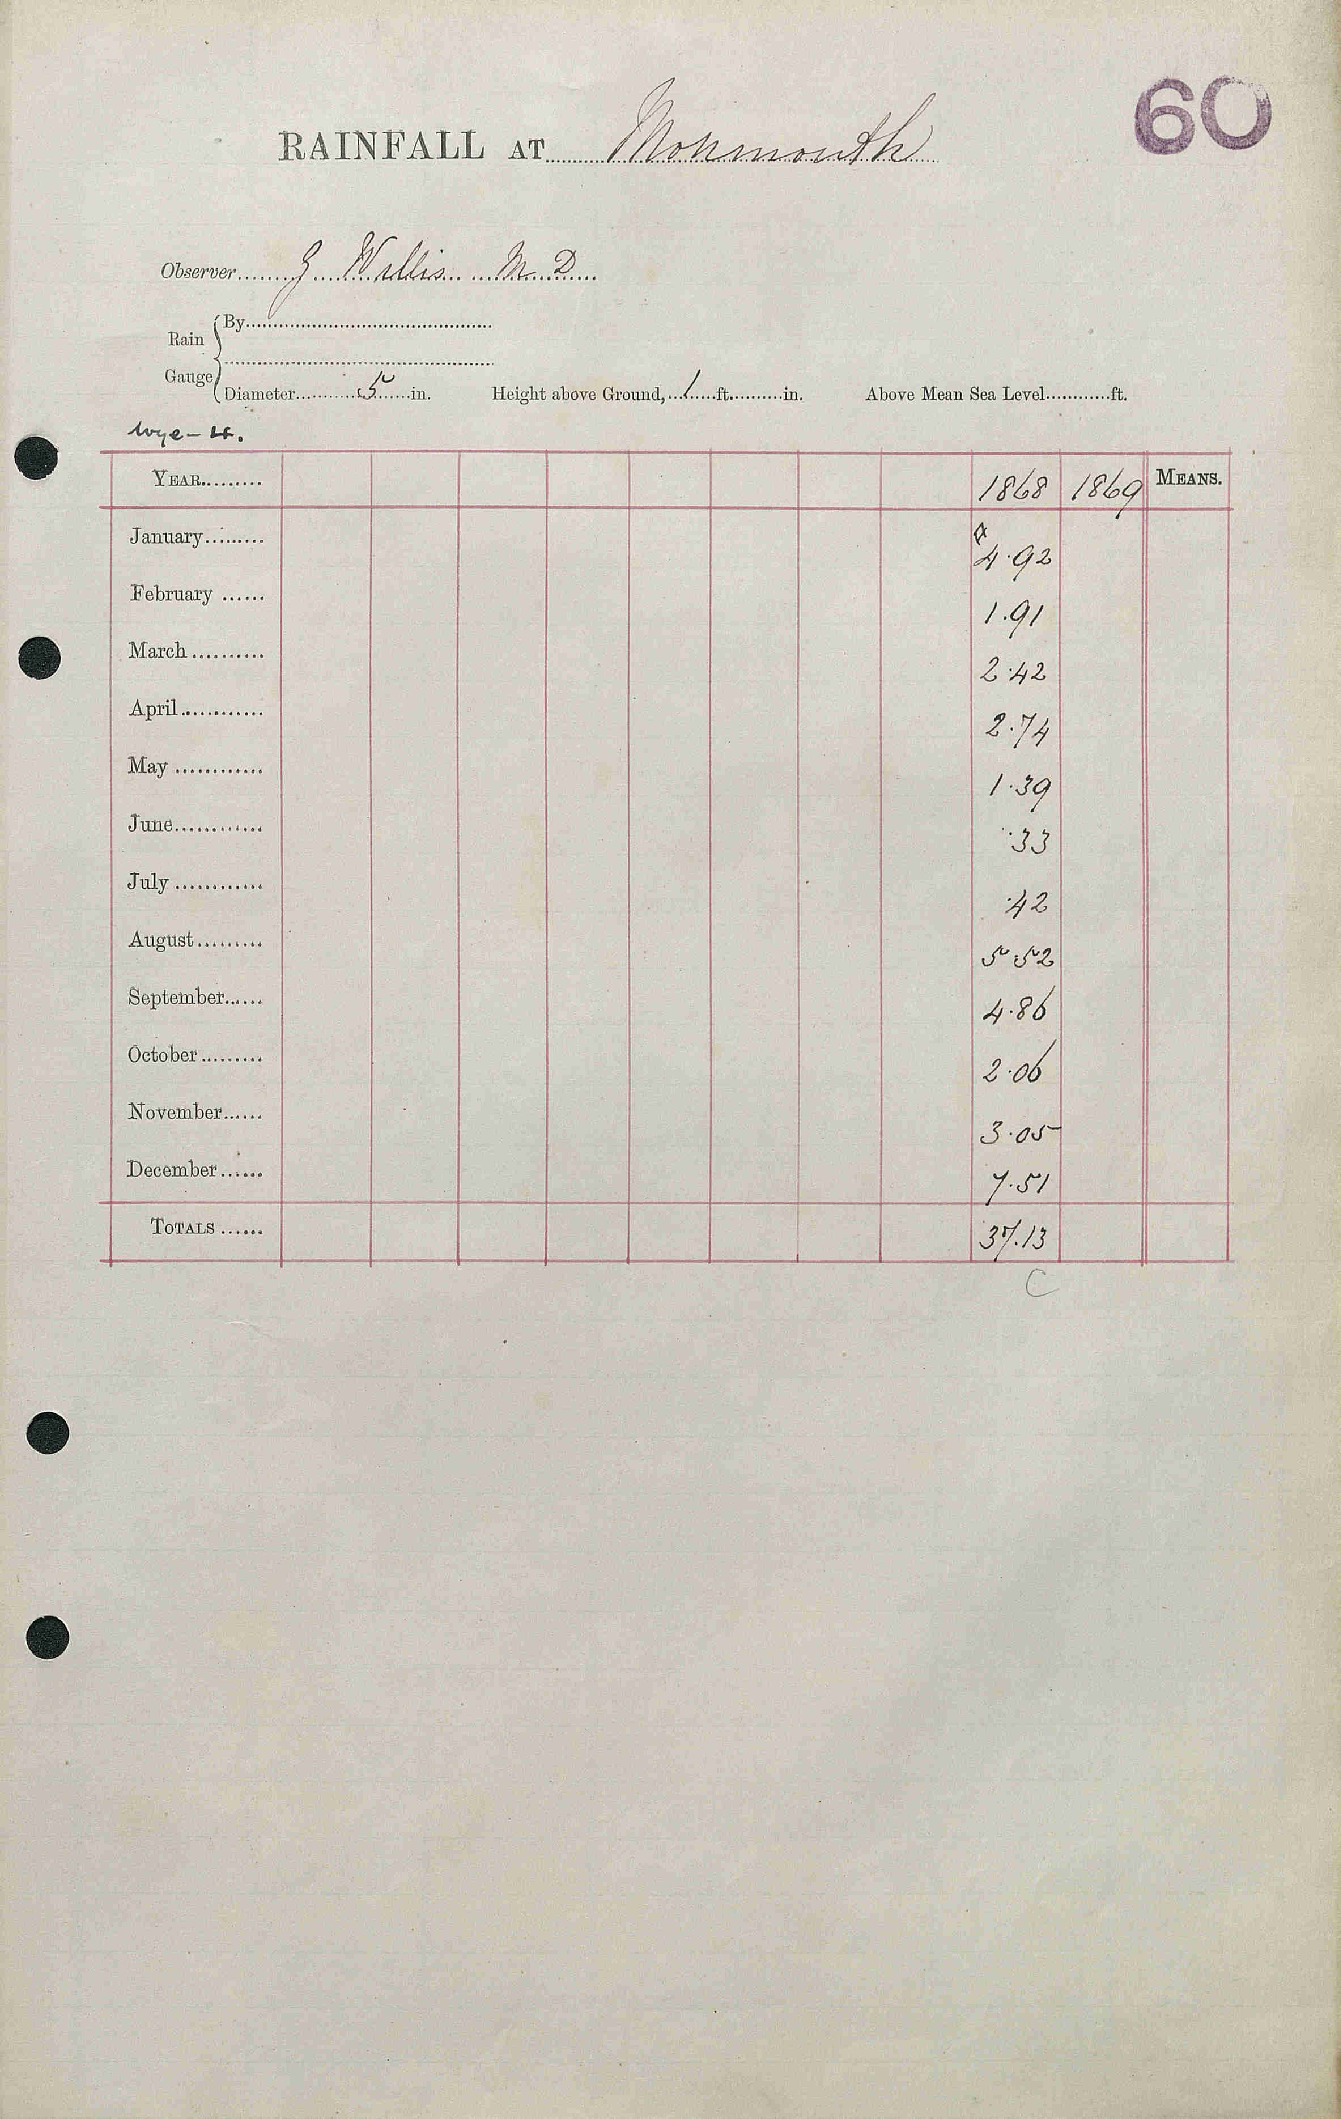 60
RAINFALL AT Monmouth
Observer G Willis M D
Rain Gauge
By
Diameter 5 in. Height above Ground, 1 ft. in. Above Mean Sea Level ft.
Wye - 4.
YEAR 1868 1869 MEANS.
January a 4.92
February 1.91
March 2.42
April 2.74
May 1.39
June .33
July .42
August 5.52
September 4.86
October 2.06
November 3.05
December 7.51
TOTALS 37.13
C